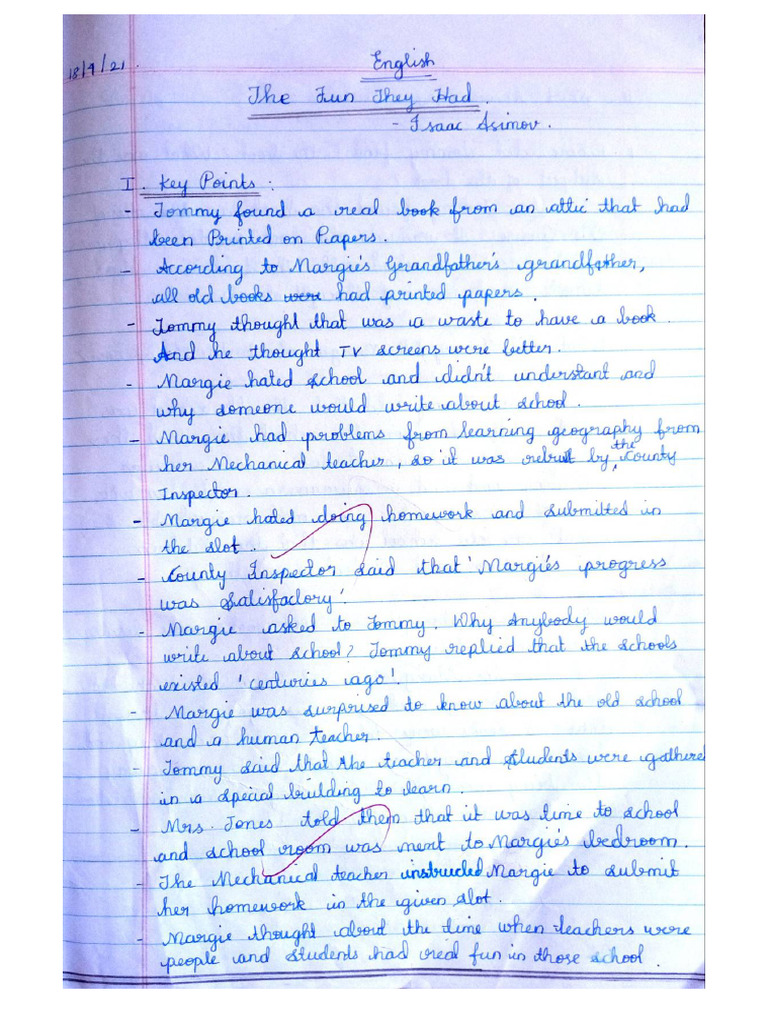 18/9/21.
English
The Fun They Had.
- Isaac Asimov.
I. Key Points:
- Tommy found a real book from an attic that had
been Printed on Papers.
- According to Margie's Grandfather's grandfather,
all old books were had printed papers.
- Tommy thought that was a waste to have a book.
And he thought TV screens were better.
- Margie hated school and didn't understant and
why someone would write about school.
- Margie had problems from learning geography from
her Mechanical teacher, so it was rebuilt by the County
Inspector.
- Margie hated doing homework and submitted in
the slot.
- County Inspector said that 'Margie's progress
was Satisfactory'.
- Margie asked to Tommy. Why Anybody would
write about school? Tommy replied that the schools
existed 'centuries ago'.
- Margie was surprised to know about the old school
and a human teacher.
- Tommy said that the teacher and students were gathered
in a special building to learn.
- Mrs. Jones told them that it was time to school
and school room was next to Margie's bedroom.
- The Mechanical teacher instructed Margie to submit
her homework in the given slot.
- Margie thought about the time when teachers were
people and students had real fun in those school.